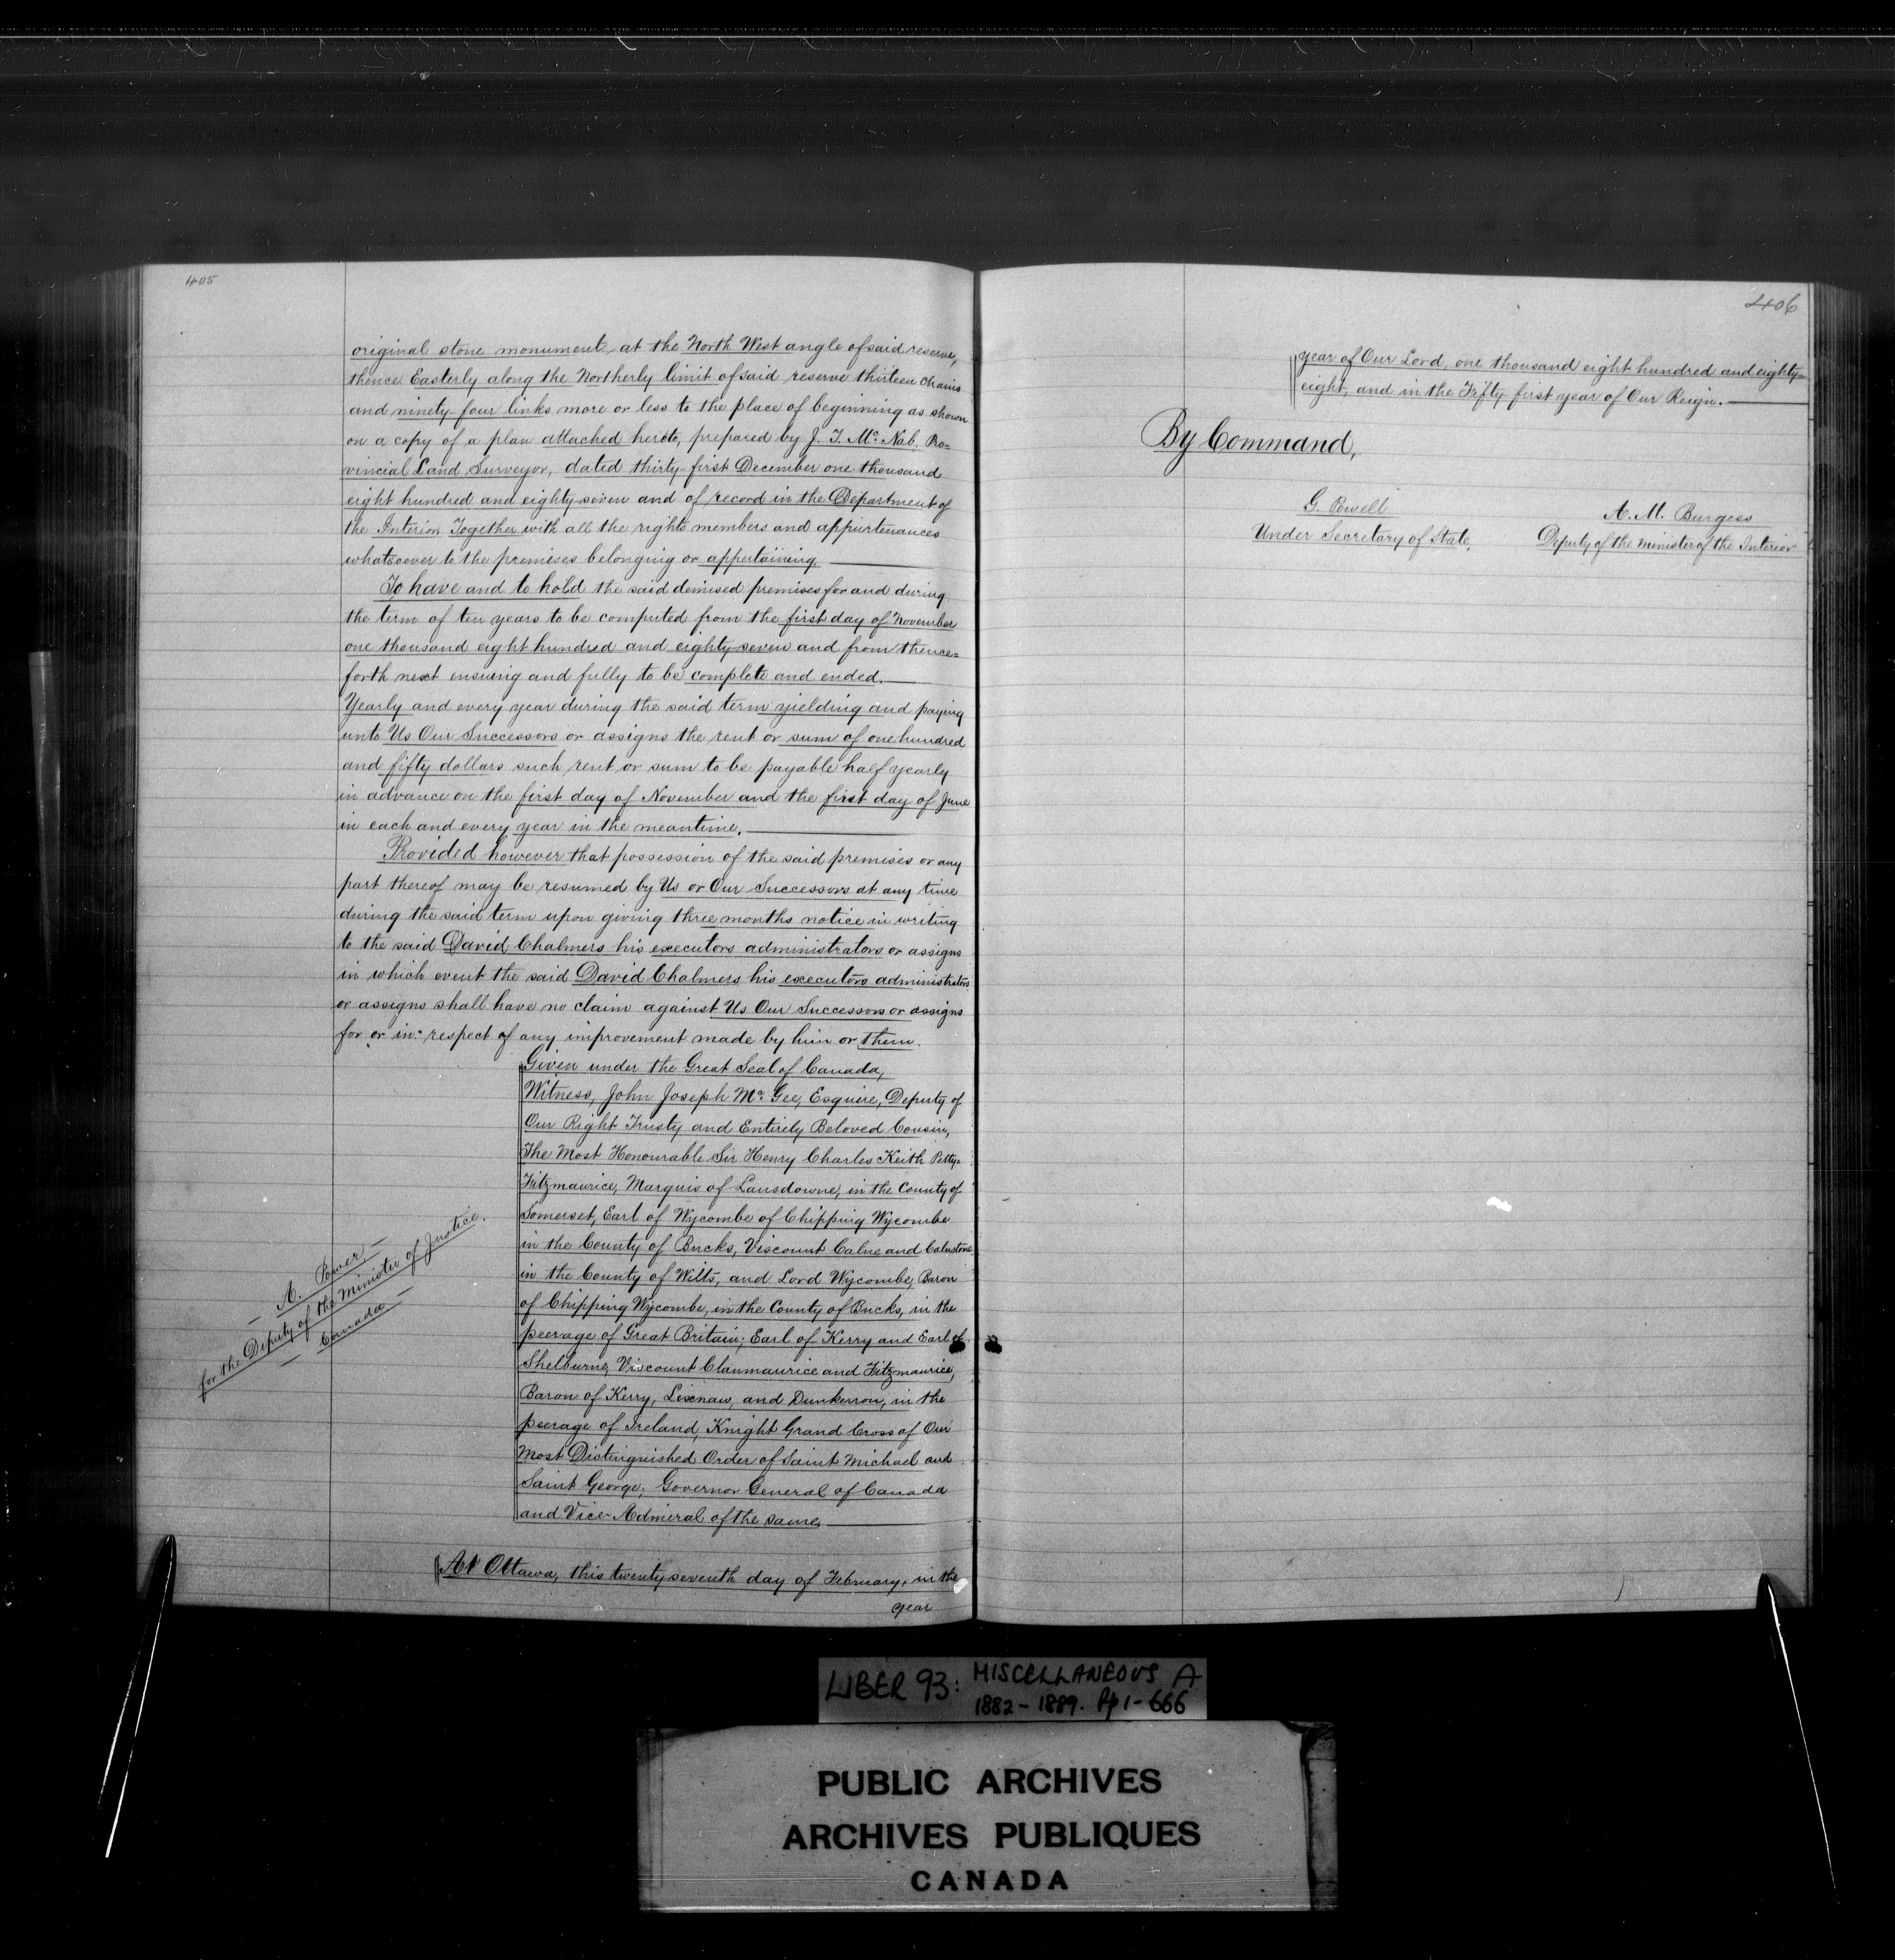 405
original stone monument at the North West angle of said reserve,
thence Easterly along the Northerly limit of said reserve thirteen chains
and ninety-four links more or less to the place of beginning as shown
on a copy of a plan attached hereto, prepared by J. T. Mc Nab. Pro=
vincial Land Surveyor, dated thirty-first December one thousand
eight hundred and eighty-seven and of record in the Department of
the Interior, Together with all the rights members and appurtenances
whatsoever to the premises belonging or appertaining
To have and to hold the said demised premises for and during
the term of ten years to be computed from the first day of November
one thousand eight hundred and eighty-seven and from thence=
forth next ensuing and fully to be complete and ended.
Yearly and every year during the said term yielding and paying
unto Us Our Successors or assigns the rent or sum of one hundred
and fifty dollars such rent or sum to be payable half yearly
in advance on the first day of November and the first day of June
in each and every year in the meantime.
Provided however that possession of the said premises or any
part thereof may be resumed by Us or Our Successors at any time
during the said term upon giving three months notice in writing
to the said David Chalmers his executors administrators or assigns
in which event the said David Chalmers his executors administrators
or assigns shall have no claim against Us Our Successors or assigns
for or in respect of any improvement made by him or them.
Given under the Great Seal of Canada,
Witness, John Joseph Mc Gee, Esquire, Deputy of
Our Right Trusty and Entirely Beloved Cousin,
The Most Honourable Sir Henry Charles Keith Petty-
Fitzmaurice, Marquis of Lansdowne, in the County of
Somerset, Earl of Wycombe of Chipping Wycombe
in the County of Bucks, Viscount Calne and Calnstone
in the County of Wilts, and Lord Wycombe, Baron
of Chipping Wycombe, in the County of Bucks, in the
peerage of Great Britain; Earl of Kerry and Earl of
Shelburne, Viscount Clanmaurice and Fitzmaurice,
Baron of Kerry, Lixnaw, and Dunkerron, in the
peerage of Ireland, Knight Grand Cross of Our
Most Distinguished Order of Saint Michael and
Saint George; Governor General of Canada
and Vice-Admiral of the same.
A. Power
for the Deputy of the Minister of Justice.
Canada
At Ottawa, this twenty seventh day of February, in the
year
406
year of Our Lord, one thousand eight hundred and eighty=
eight, and in the Fifty-first year of Our Reign.
By Command,
G. Powell
Under Secretary of State.
A. M. Burgess
Deputy of the Minister of the Interior
LIBER 93: MISCELLANEOUS A
1882-1889. Pp 1-666
PUBLIC ARCHIVES
ARCHIVES PUBLIQUES
CANADA